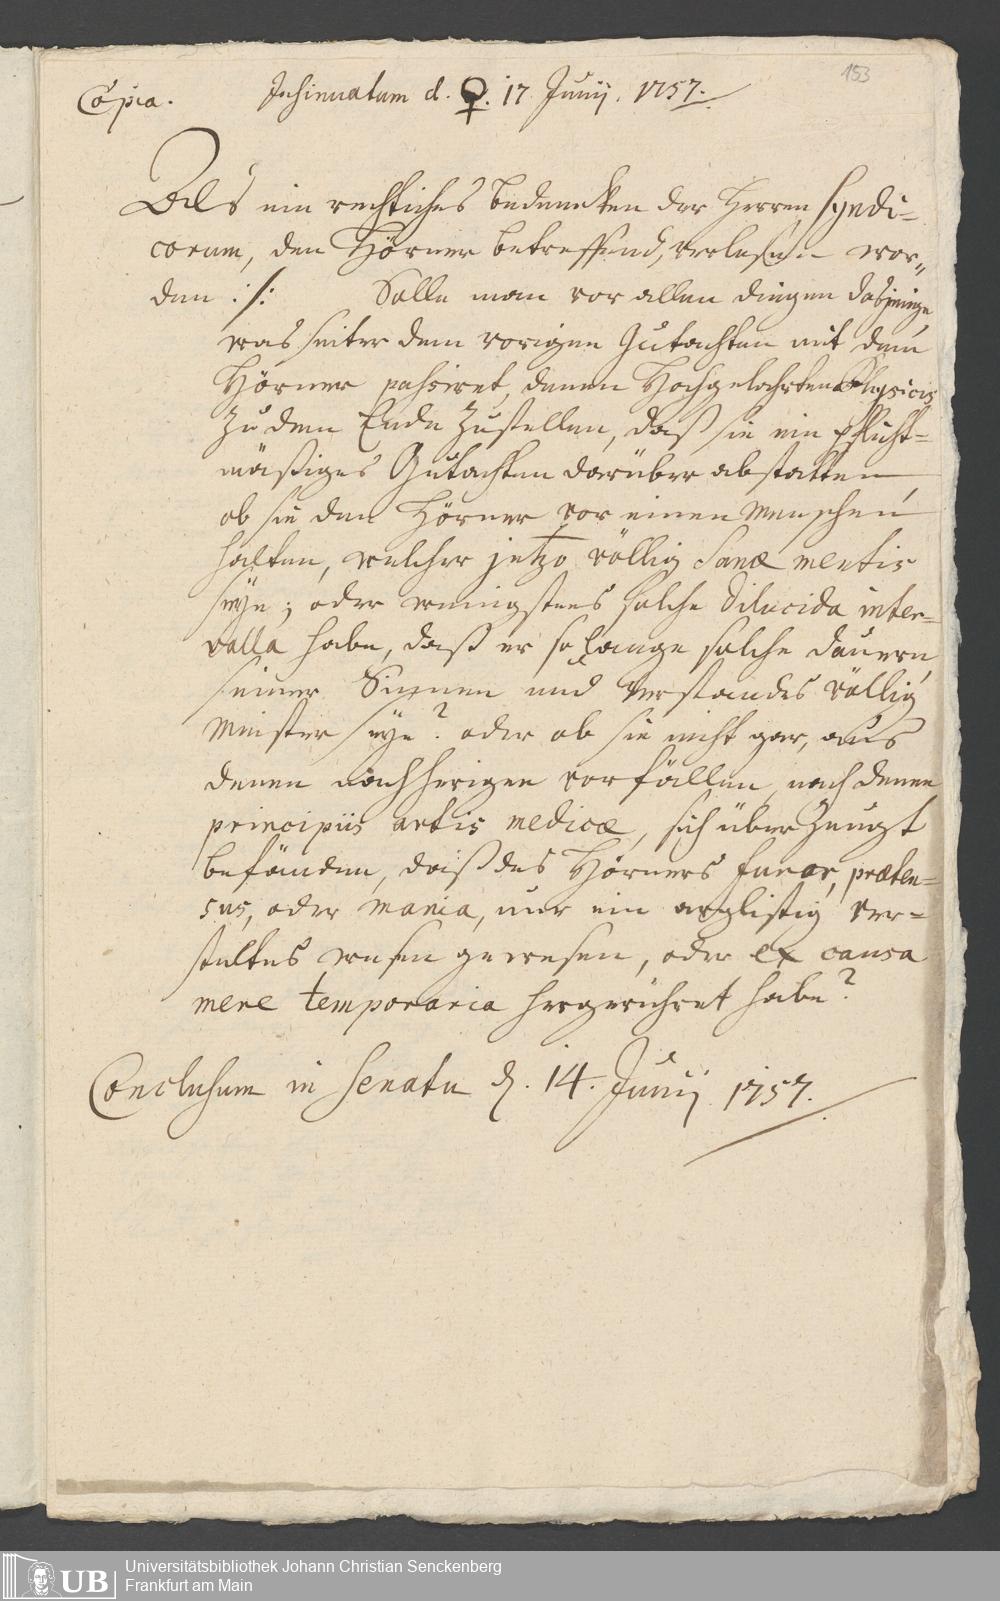 153
Copia. Insinuatum d. ♀. 17 Junij. 1757.
Als ein rechtliches bedencken der Herren Syndi-
corum, den Hörner betreffend, verlesen wor-
den :/: Solle man vor allen dingen dasjenige
was seiter dem vorigen Gutachten mit dem
Hörner passiret, denen Hochgelehrten Physicis
zu dem Ende zustellen, daß sie ein pflicht-
mäßiges Gutachten darüber abstatten,
ob sie den Hörner vor einen Menschen
halten, welcher jetzo völlig Sanæ mentis
seye; oder wenigstens solche dilucida inter-
valla habe, daß er so lange solche dauern
seiner Sinnen und Verstandes völlig
Meister seye? oder ob sie nicht gar, aus
denen nachherigen vorfällen, nach denen
principiis artis medicæ, sich überzeugt
befänden, daß des Hörners furor, præten-
sus, oder mania, nur ein arglistig ver-
stelltes wesen gewesen, oder ex causa
mere temporaria hergerühret habe?
Conclusum in Senatu d. 14. Junij 1757.
UB Universitätsbibliothek Johann Christian Senckenberg
Frankfurt am Main